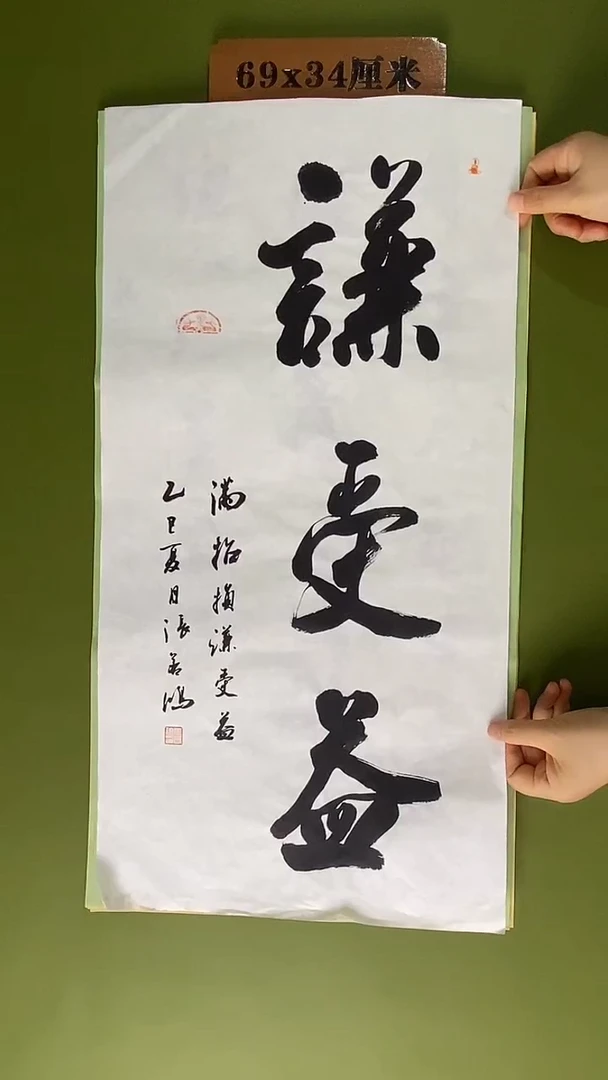 69x34厘米
謙受益
满招损谦受益
乙巳夏日张若鸿